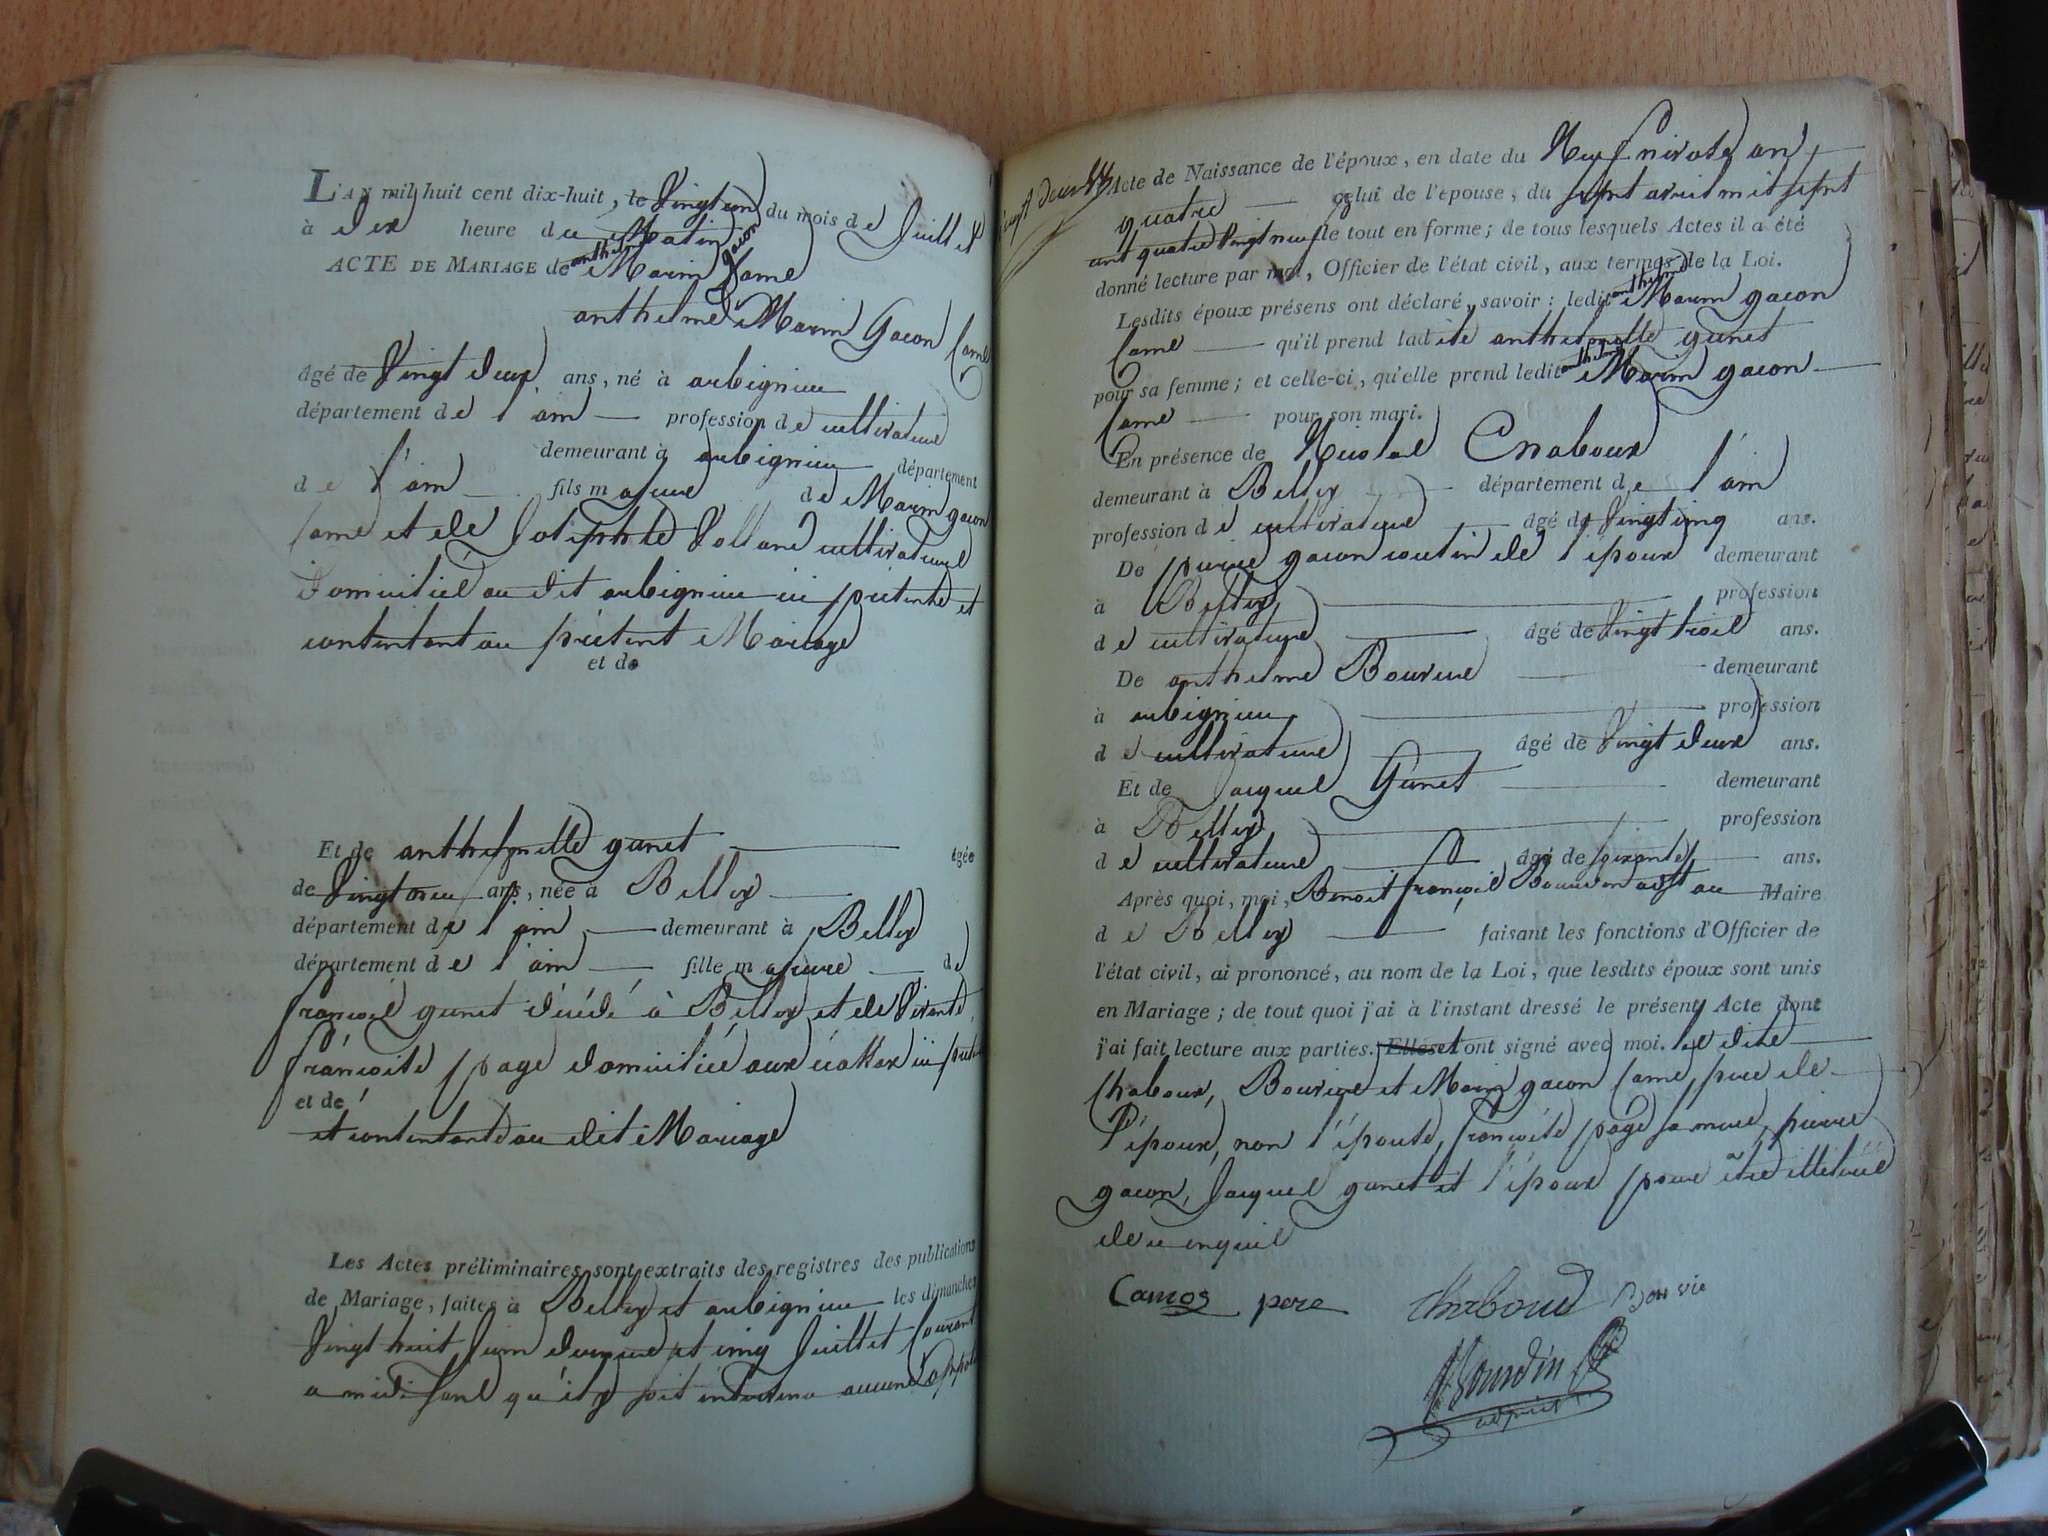 L'AN mil huit cent dix-huit, le Vingt un du mois de Juillet
à dix heure du Matin
ACTE DE MARIAGE de anthelme Marin gacon Came
anthelme Marin Gacon Came
âgé de Vingt deux ans, né à arbignieu
département de l'ain profession de cultivateur
demeurant à arbignieu département
de l'ain fils majeur de Marin gacon
Came et de Josephte Volland cultivateurs
domiciliés au dit arbignieu ici présents et
consentant au présent Mariage
et de
Et de anthelmette gunet âgée
de Vingt neuf ans, née à Belley
département de l'ain demeurant à Belley
département de l'ain fille majeure de
françois gunet décédé à Belley et de Vivante
françoise page domiciliée aux écassaz ici présente
et de
et consentante au dit Mariage
Les Actes préliminaires sont extraits des registres des publications
de Mariage, faites à Belley et arbignieu les dimanches
Vingt huit Juin dernier et cinq Juillet Courant
a midi sans qu'il y soit intervenu aucune oppo
Acte de Naissance de l'époux, en date du Neuf nivose an
quatre celui de l'épouse, du sept avril mil sept
cent quatre Vingt neuf le tout en forme; de tous lesquels Actes il a été
donné lecture par moi, Officier de l'état civil, aux termes de la Loi.
Lesdits époux présens ont déclaré, savoir: ledit anthelme Marin gacon
Came qu'il prend ladite anthelmette gunet
pour sa femme; et celle-ci, qu'elle prend ledit anthelme Marin gacon
Came pour son mari.
En présence de Nicolas Chaboux
demeurant à Belley département de l'ain
profession de cultivateur âgé de Vingt cinq ans.
De pierre gacon cousin de l'époux demeurant
à Belley profession
de cultivateur âgé de Vingt trois ans.
De anthelme Bouvier demeurant
à arbignieu profession
de cultivateur âgé de Vingt deux ans.
Et de Jacques Gunet demeurant
à Belley profession
de cultivateur âgé de soixante ans.
Après quoi, moi, Benoit françois Bourdin adjt au Maire
de Belley faisant les fonctions d'Officier de
l'état civil, ai prononcé, au nom de la Loi, que lesdits époux sont unis
en Mariage; de tout quoi j'ai à l'instant dressé le présent Acte dont
j'ai fait lecture aux parties. Elles et ont signé avec moi. les dits
Chaboux, Bouvier et Marin gacon Came père de
l'époux, non l'épouse, françoise page sa mère, pierre
gacon, Jacques gunet et l'époux pour être illétérés
de ce enquis
Camos pere Chaboud Bouvie
Bourdin
adjoint